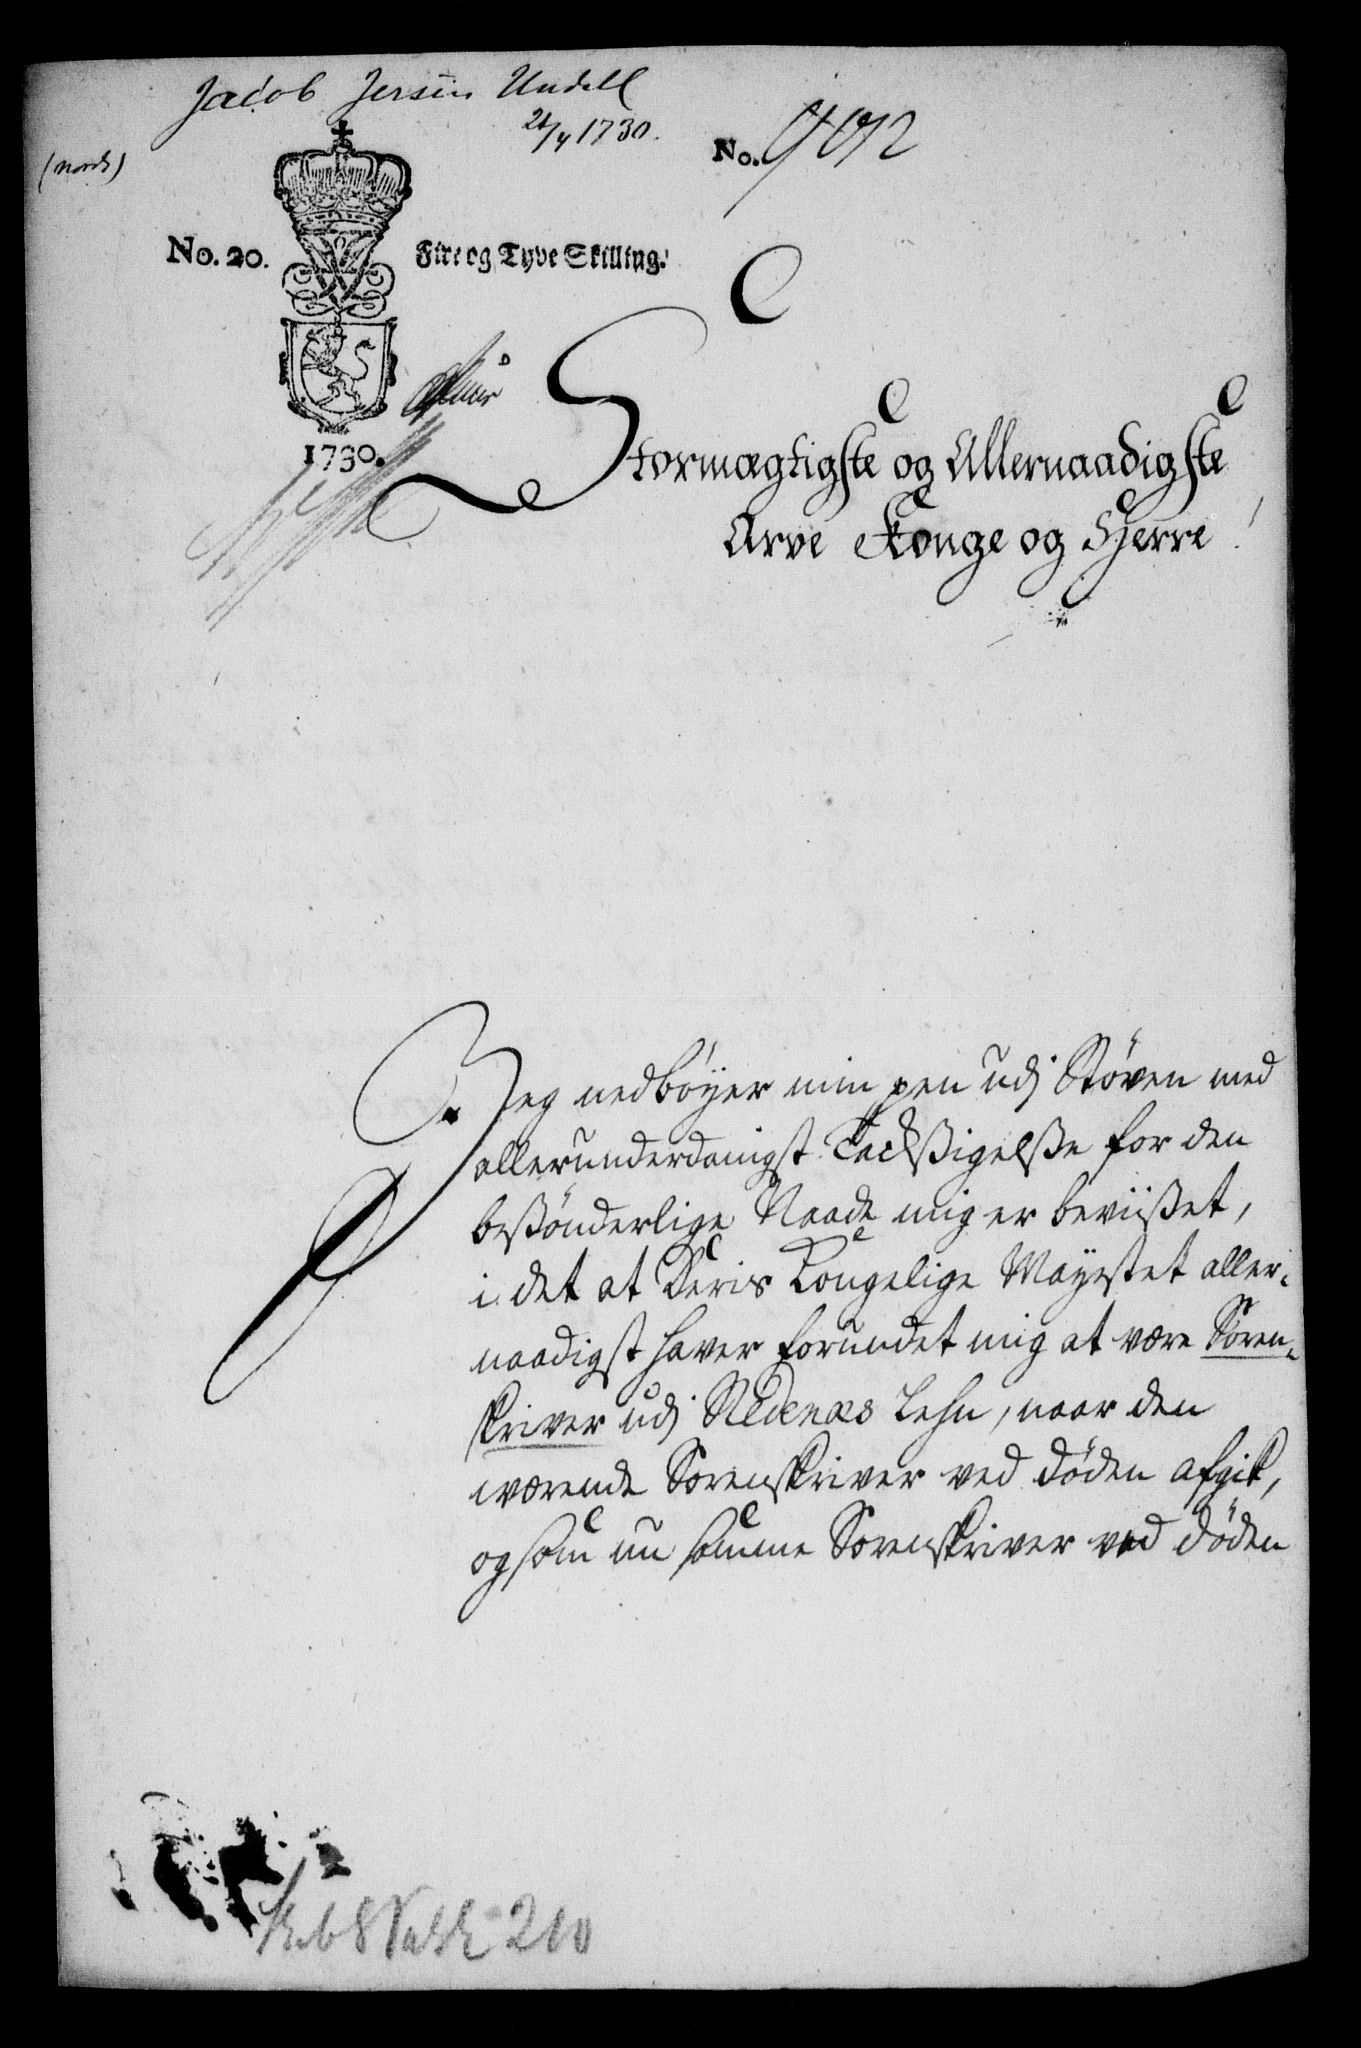 Jacob Jersin Undall
21/4 1730.
(Nords)
No.
No. 20.
Fire og Tyve Skilling.
1730.
Stormægtigste og Allernaadigste
Arve Konge og Herre!
Jeg nedbøyer min pen udj Støven med
allerunderdanigst Tachsigelsse for den
besønderlige Naade mig er beviisset,
i det at Deris Kongelige Mayestet aller-
naadigst haver forundet mig at være Soren-
skriver udj Nedenæs Lehn, naar den
værende Sorenskriver ved døden afgik,
og som nu samme Sorenskriver ved døden